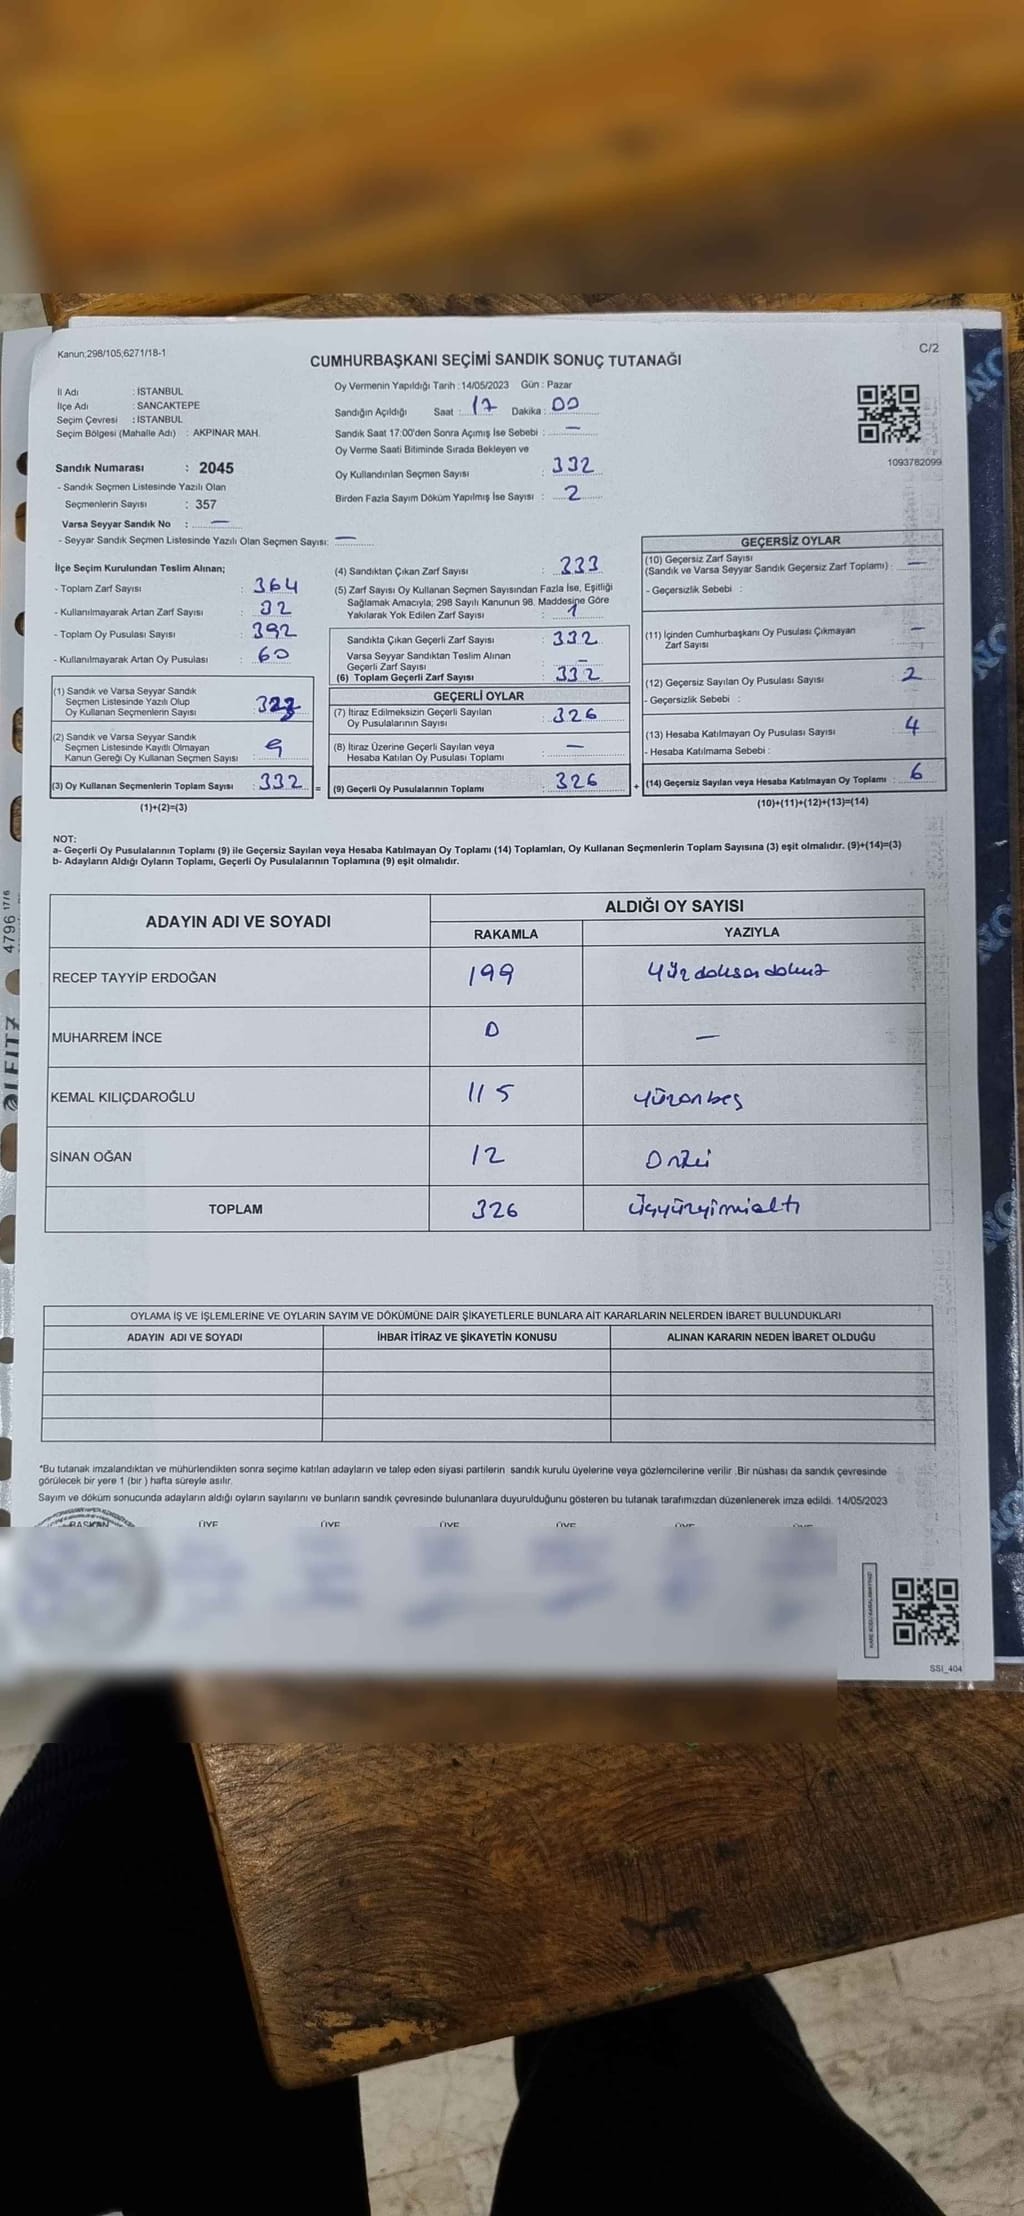 Kanun;298/105;6271/18-1
C/2
CUMHURBAŞKANI SEÇİMİ SANDIK SONUÇ TUTANAĞI
İl Adı : İSTANBUL
İlçe Adı : SANCAKTEPE
Seçim Çevresi : İSTANBUL
Seçim Bölgesi (Mahalle Adı) : AKPINAR MAH.
Sandık Numarası : 2045
- Sandık Seçmen Listesinde Yazılı Olan
Seçmenlerin Sayısı : 357
Varsa Seyyar Sandık No : —
- Seyyar Sandık Seçmen Listesinde Yazılı Olan Seçmen Sayısı: —
Oy Vermenin Yapıldığı Tarih : 14/05/2023 Gün : Pazar
Sandığın Açıldığı Saat : 17 Dakika : 00
Sandık Saat 17:00'den Sonra Açımış İse Sebebi : —
Oy Verme Saati Bitiminde Sırada Bekleyen ve
Oy Kullandırılan Seçmen Sayısı : 332
Birden Fazla Sayım Döküm Yapılmış İse Sayısı : 2
1093782099
İlçe Seçim Kurulundan Teslim Alınan;
- Toplam Zarf Sayısı : 364
- Kullanılmayarak Artan Zarf Sayısı : 32
- Toplam Oy Pusulası Sayısı : 392
- Kullanılmayarak Artan Oy Pusulası : 60
(1) Sandık ve Varsa Seyyar Sandık
Seçmen Listesinde Yazılı Olup
Oy Kullanan Seçmenlerin Sayısı : 323
(2) Sandık ve Varsa Seyyar Sandık
Seçmen Listesinde Kayıtlı Olmayan
Kanun Gereği Oy Kullanan Seçmen Sayısı : 9
(3) Oy Kullanan Seçmenlerin Toplam Sayısı : 332 =
(1)+(2)=(3)
(4) Sandıktan Çıkan Zarf Sayısı : 333
(5) Zarf Sayısı Oy Kullanan Seçmen Sayısından Fazla İse, Eşitliği
Sağlamak Amacıyla; 298 Sayılı Kanunun 98. Maddesine Göre
Yakılarak Yok Edilen Zarf Sayısı : 1
Sandıkta Çıkan Geçerli Zarf Sayısı : 332
Varsa Seyyar Sandıktan Teslim Alınan
Geçerli Zarf Sayısı : —
(6) Toplam Geçerli Zarf Sayısı : 332
GEÇERLİ OYLAR
(7) İtiraz Edilmeksizin Geçerli Sayılan
Oy Pusulalarının Sayısı : 326
(8) İtiraz Üzerine Geçerli Sayılan veya
Hesaba Katılan Oy Pusulası Toplamı : —
(9) Geçerli Oy Pusulalarının Toplamı : 326 +
GEÇERSİZ OYLAR
(10) Geçersiz Zarf Sayısı
(Sandık ve Varsa Seyyar Sandık Geçersiz Zarf Toplamı) : —
- Geçersizlik Sebebi :
(11) İçinden Cumhurbaşkanı Oy Pusulası Çıkmayan
Zarf Sayısı : —
(12) Geçersiz Sayılan Oy Pusulası Sayısı : 2
- Geçersizlik Sebebi :
(13) Hesaba Katılmayan Oy Pusulası Sayısı : 4
- Hesaba Katılmama Sebebi :
(14) Geçersiz Sayılan veya Hesaba Katılmayan Oy Toplamı : 6
(10)+(11)+(12)+(13)=(14)
NOT:
a- Geçerli Oy Pusulalarının Toplamı (9) ile Geçersiz Sayılan veya Hesaba Katılmayan Oy Toplamı (14) Toplamları, Oy Kullanan Seçmenlerin Toplam Sayısına (3) eşit olmalıdır. (9)+(14)=(3)
b- Adayların Aldığı Oyların Toplamı, Geçerli Oy Pusulalarının Toplamına (9) eşit olmalıdır.
ADAYIN ADI VE SOYADI
ALDIĞI OY SAYISI
RAKAMLA YAZIYLA
RECEP TAYYİP ERDOĞAN 199 yüzdoksandokuz
MUHARREM İNCE 0 —
KEMAL KILIÇDAROĞLU 115 yüzonbeş
SİNAN OĞAN 12 Oniki
TOPLAM 326 Üçyüzyirmialtı
OYLAMA İŞ VE İŞLEMLERİNE VE OYLARIN SAYIM VE DÖKÜMÜNE DAİR ŞİKAYETLERLE BUNLARA AİT KARARLARIN NELERDEN İBARET BULUNDUKLARI
ADAYIN ADI VE SOYADI İHBAR İTİRAZ VE ŞİKAYETİN KONUSU ALINAN KARARIN NEDEN İBARET OLDUĞU
*Bu tutanak imzalandıktan ve mühürlendikten sonra seçime katılan adayların ve talep eden siyasi partilerin sandık kurulu üyelerine veya gözlemcilerine verilir .Bir nüshası da sandık çevresinde
görülecek bir yere 1 (bir ) hafta süreyle asılır.
Sayım ve döküm sonucunda adayların aldığı oyların sayılarını ve bunların sandık çevresinde bulunanlara duyurulduğunu gösteren bu tutanak tarafımızdan düzenlenerek imza edildi. 14/05/2023
BAŞKAN ÜYE ÜYE ÜYE ÜYE ÜYE ÜYE
SSI_404
4796 17/6